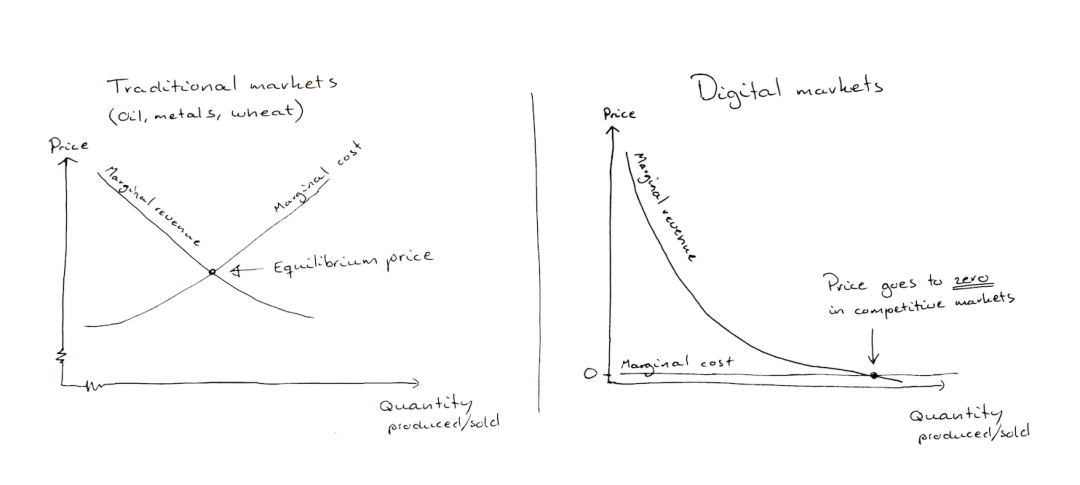 Traditional markets
(Oil, metals, wheat)
Price
Marginal revenue
Marginal cost
Equilibrium price
Quantity
produced/sold
Digital markets
Price
Marginal revenue
Price goes to zero
in competitive markets
0
Marginal cost
Quantity
produced/sold